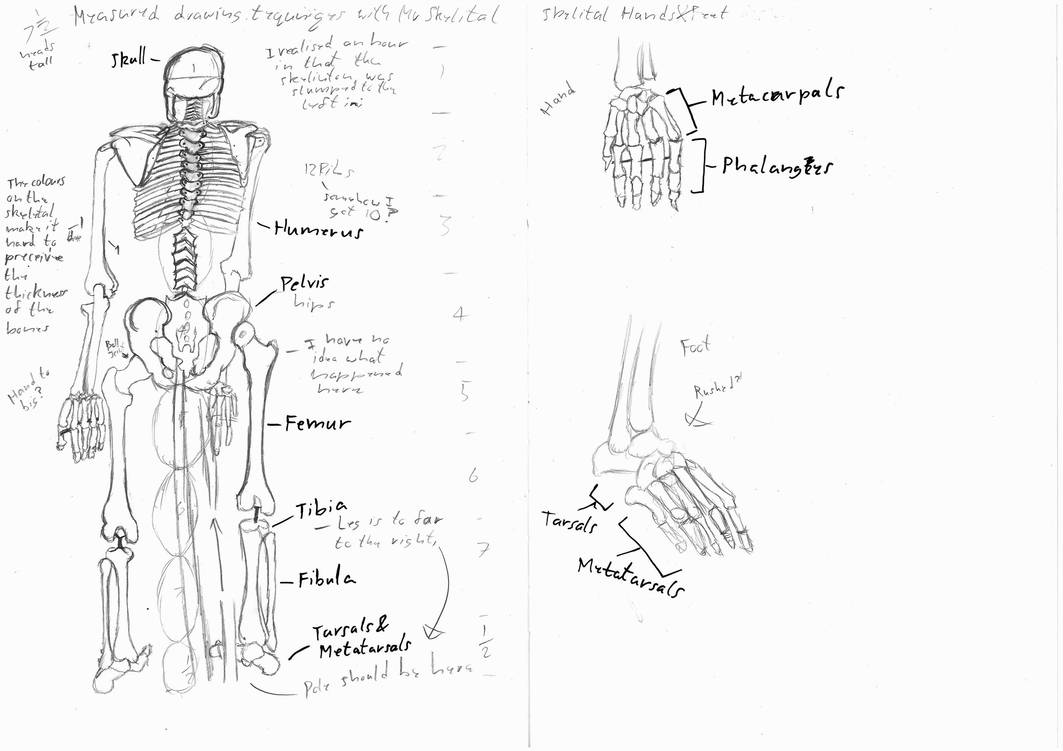 7½
heads
tall
Measured drawing. tequniqes with Mr Skelital
Skull
1
I realised an hour
in that the
skeliton, was
slumped to the
left
1
2
12 Ribs
somehow I
get 10?
3
The colours
on the
skelital
make it
hard to
precerive
the
thickness
of the
bones
Humerus
Pelvis
hips
4
Ball
Joint
I have no
idea what
happened
here
5
Hand to
big?
Femur
6
Tibia
Leg is to far
to the right,
7
Fibula
Tarsals &
Metatarsals
1/2
Pole should be here
Skelital Hands X Feet
Hand
Metacarpals
Phalanges
Foot
Rushed?!
Tarsals
Metatarsals